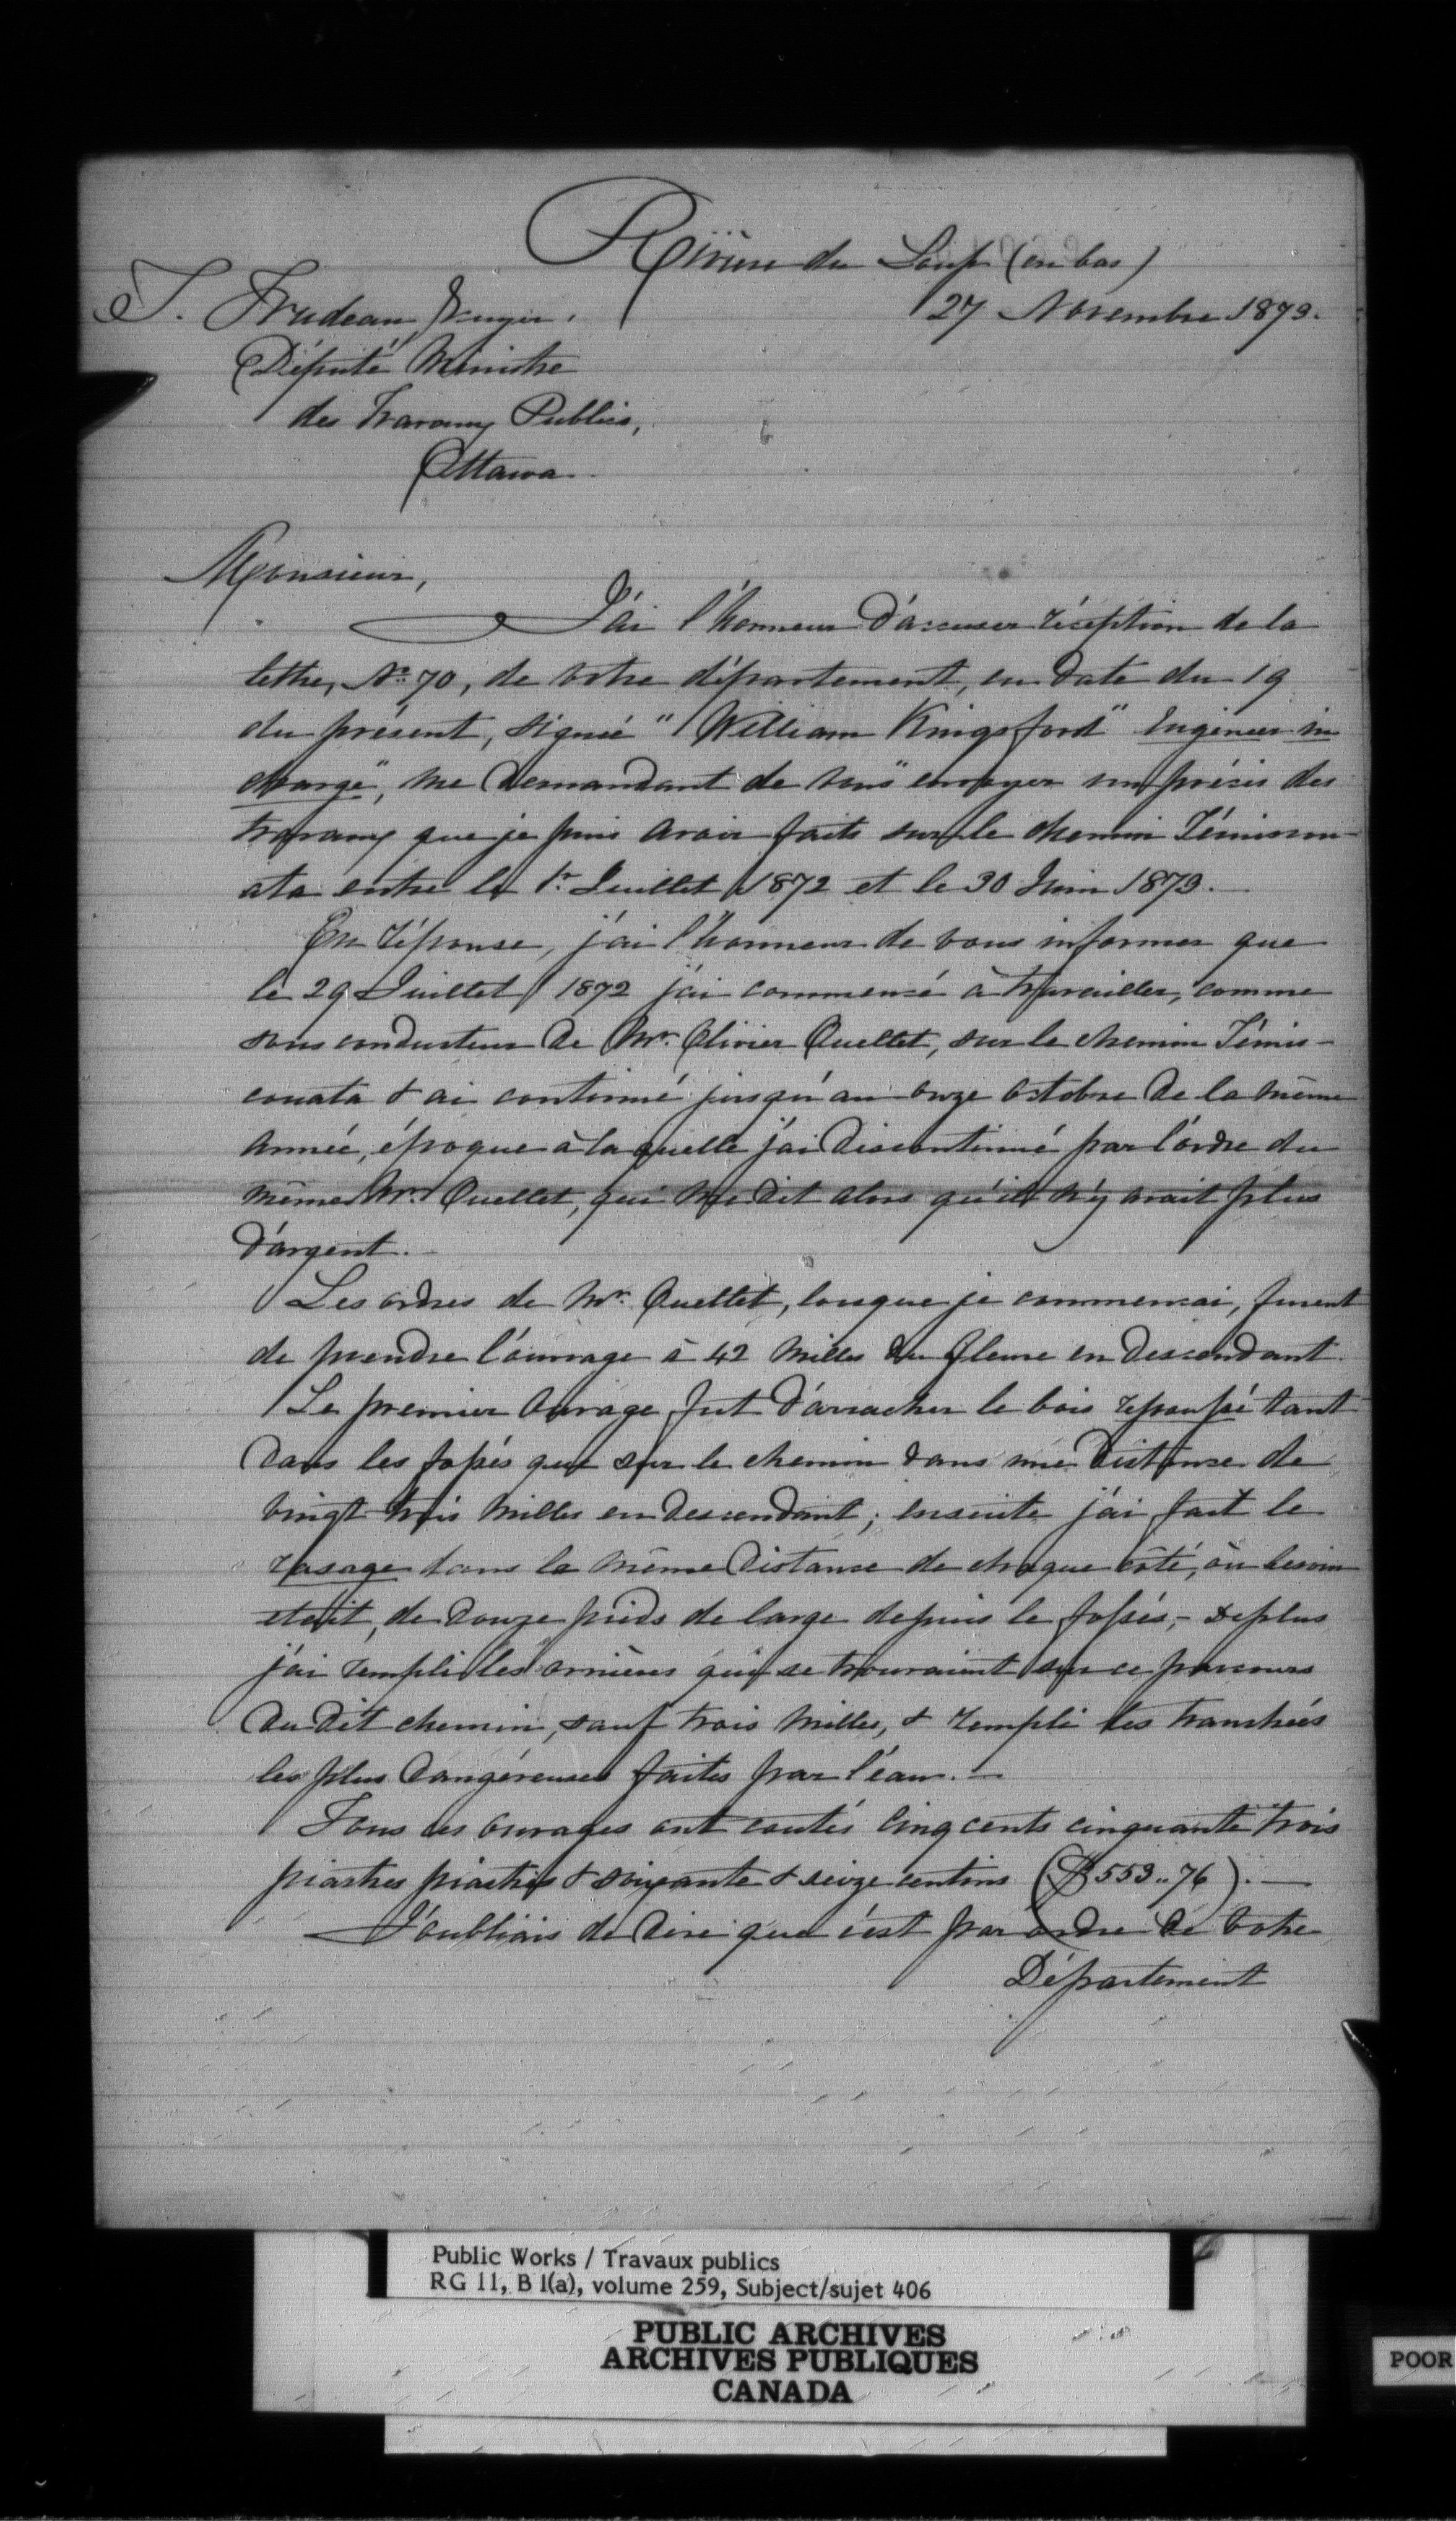 Rivière du Loup (en bas)
27 Novembre 1873.
T. Trudeau Ecuyer,
Député Ministre
des Travaux Publics,
Ottawa.
Monsieur,
J'ai l'honneur d'accuser réception de la
lettre, No. 70, de votre département, en date du 19
du présent, signée "William Kingsford" Engineer in
charge", me demandant de vous "envoyer un précis des
travaux que je puis avoir faits sur le chemin Témiscou-
ata entre le 1r. Juillet 1872 et le 30 Juin 1873.
En réponse, j'ai l'honneur de vous informer que
le 29 Juillet 1872 j'ai commencé à travailler, comme
sous conducteur de Mr. Olivier Ouellet, sur le chemin Témis-
couata & ai continué jusqu'au onze octobre de la même
année, époque à laquelle j'ai discontinué par l'ordre du
même Mr. Ouellet, qui me dit alors qu'il n'y avait plus
d'argent.
Les ordres de Mr. Ouellet, lorsque je commencai, furent
de prendre l'ouvrage à 42 milles du fleuve en descendant.
Le premier ouvrage fut d'arracher le bois repoussé tant
dans les fossés que sur le chemin dans une distance de
vingt trois milles en descendant; ensuite j'ai fait le
rasage dans la même distance de chaque côté, où besoin
était, de douze pieds de large depuis le fossés,- deplus
j'ai rempli les ornières qui se trouvaient sur ce parcours
du dit chemin, sauf trois milles, & rempli les tranchées
les plus dangéreuses faites par l'eau.
Tous ces ouvrages ont coutés cinq cents cinquante trois
piastres piastres & soixante & seize centins ($553..76).
J'oubliais de dire que c'est par ordre de votre
Département
Public Works / Travaux publics
RG 11, B 1(a), volume 259, Subject/sujet 406
PUBLIC ARCHIVES
ARCHIVES PUBLIQUES
CANADA
POOR